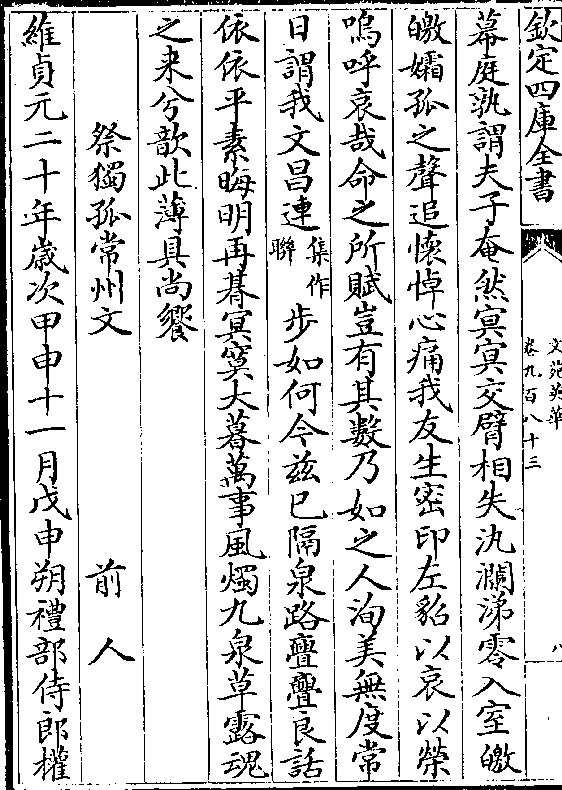 欽定四庫全書
文苑英華
卷九百八十三
八
幕庭孰謂夫子奄然冥冥交臂相失汍瀾涕零入室皦
皦孀孤之聲追懷悼心痛我友生密印左貂以哀以榮
嗚呼哀哉命之所賦豈有其數乃如之人洵美無度常
日謂我文昌連集作聯步如何今茲已隔泉路亹亹良話
依依平素晦明再朞冥寞大暮萬事風燭九泉草露魂
之来兮歆此薄具尚饗
祭獨孤常州文 前人
維貞元二十年歲次甲申十一月戊申朔禮部侍郎權